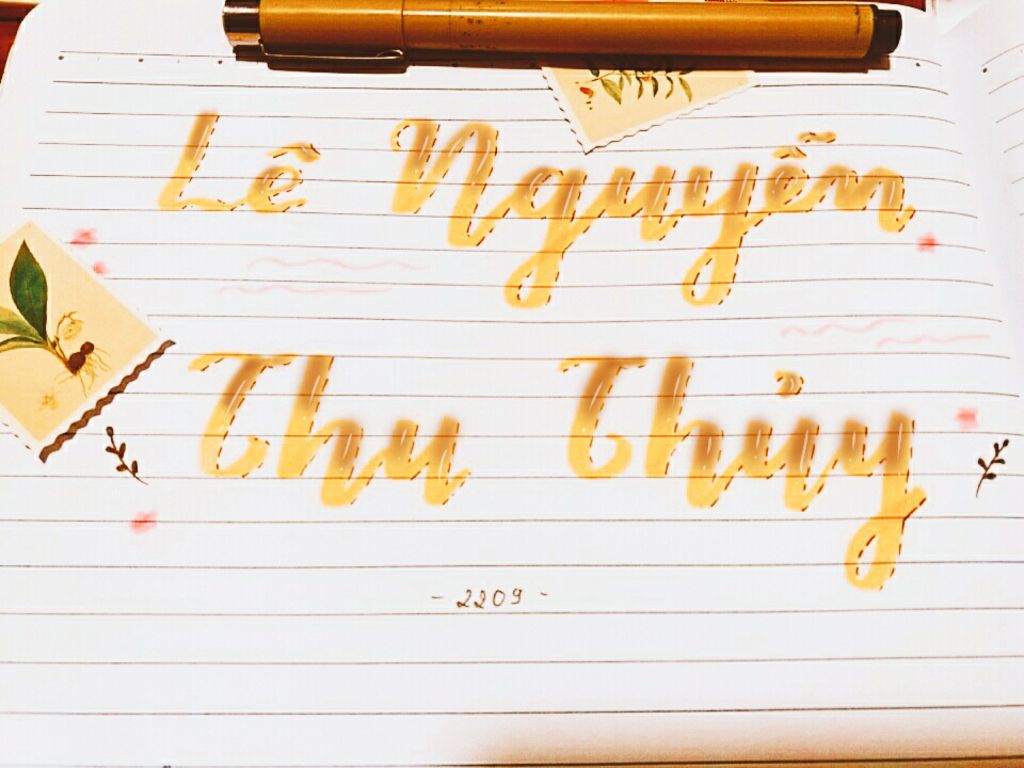 Lê Nguyễn
Thu Thủy
- 2209 -